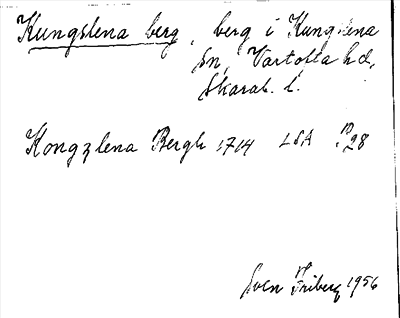 Kungslena berg, berg i Kungslena
sn, Vartofta hd,
Skarab. l.
Kongzlena Bergh 1714 LSA P 28
Sven Friberg 1956